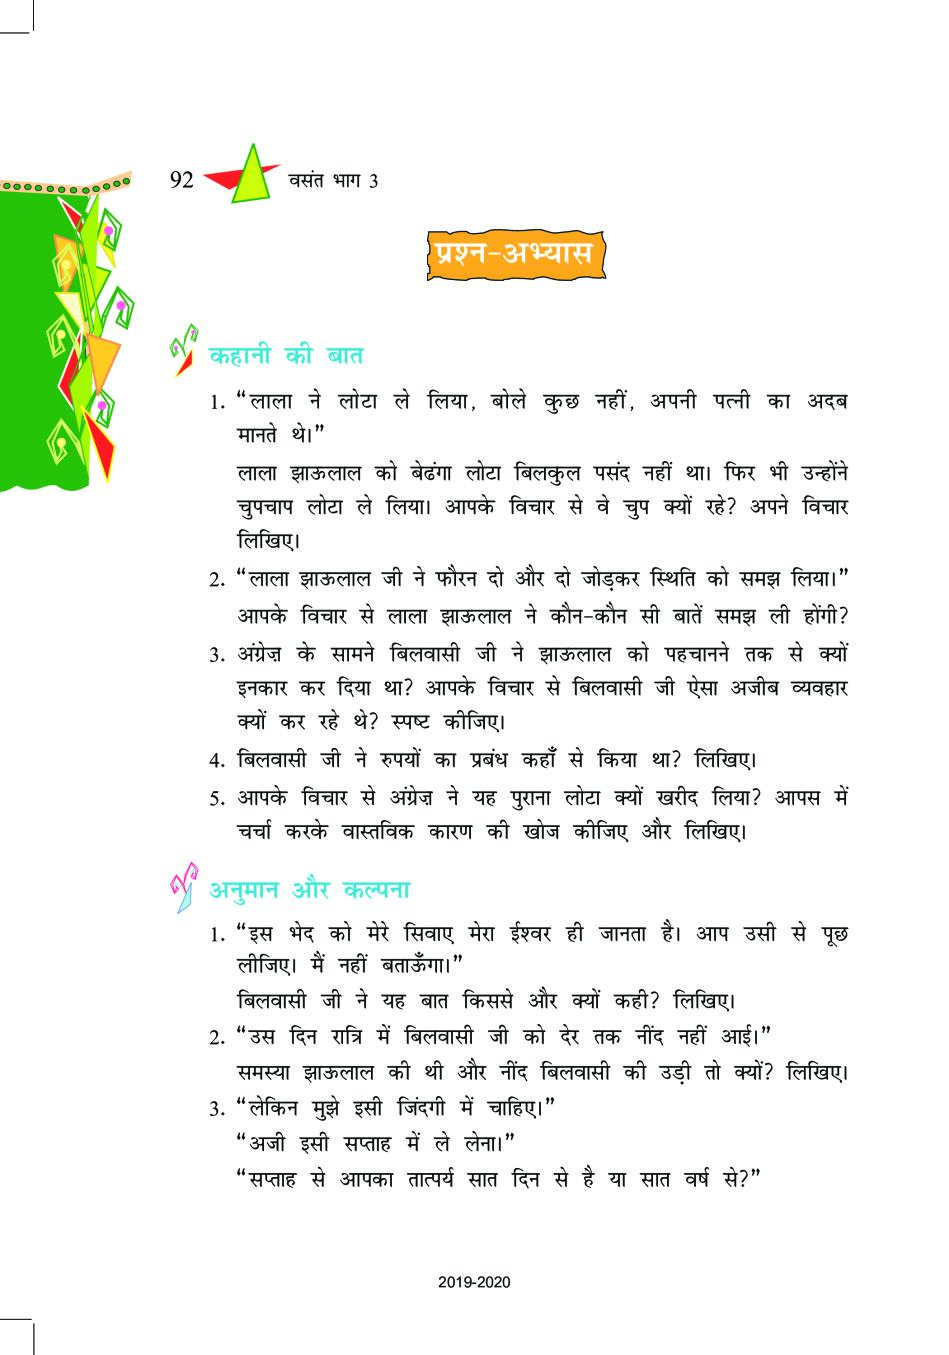 92 वसंत भाग 3
प्रश्न-अभ्यास
कहानी की बात
1. “लाला ने लोटा ले लिया, बोले कुछ नहीं, अपनी पत्नी का अदब
मानते थे।”
लाला झाऊलाल को बेढंगा लोटा बिलकुल पसंद नहीं था। फिर भी उन्होंने
चुपचाप लोटा ले लिया। आपके विचार से वे चुप क्यों रहे? अपने विचार
लिखिए।
2. “लाला झाऊलाल जी ने फौरन दो और दो जोड़कर स्थिति को समझ लिया।”
आपके विचार से लाला झाऊलाल ने कौन-कौन सी बातें समझ ली होंगी?
3. अंग्रेज़ के सामने बिलवासी जी ने झाऊलाल को पहचानने तक से क्यों
इनकार कर दिया था? आपके विचार से बिलवासी जी ऐसा अजीब व्यवहार
क्यों कर रहे थे? स्पष्ट कीजिए।
4. बिलवासी जी ने रुपयों का प्रबंध कहाँ से किया था? लिखिए।
5. आपके विचार से अंग्रेज़ ने यह पुराना लोटा क्यों खरीद लिया? आपस में
चर्चा करके वास्तविक कारण की खोज कीजिए और लिखिए।
अनुमान और कल्पना
1. “इस भेद को मेरे सिवाए मेरा ईश्वर ही जानता है। आप उसी से पूछ
लीजिए। मैं नहीं बताऊँगा।”
बिलवासी जी ने यह बात किससे और क्यों कही? लिखिए।
2. “उस दिन रात्रि में बिलवासी जी को देर तक नींद नहीं आई।”
समस्या झाऊलाल की थी और नींद बिलवासी की उड़ी तो क्यों? लिखिए।
3. “लेकिन मुझे इसी जिंदगी में चाहिए।”
“अजी इसी सप्ताह में ले लेना।”
“सप्ताह से आपका तात्पर्य सात दिन से है या सात वर्ष से?”
2019-2020